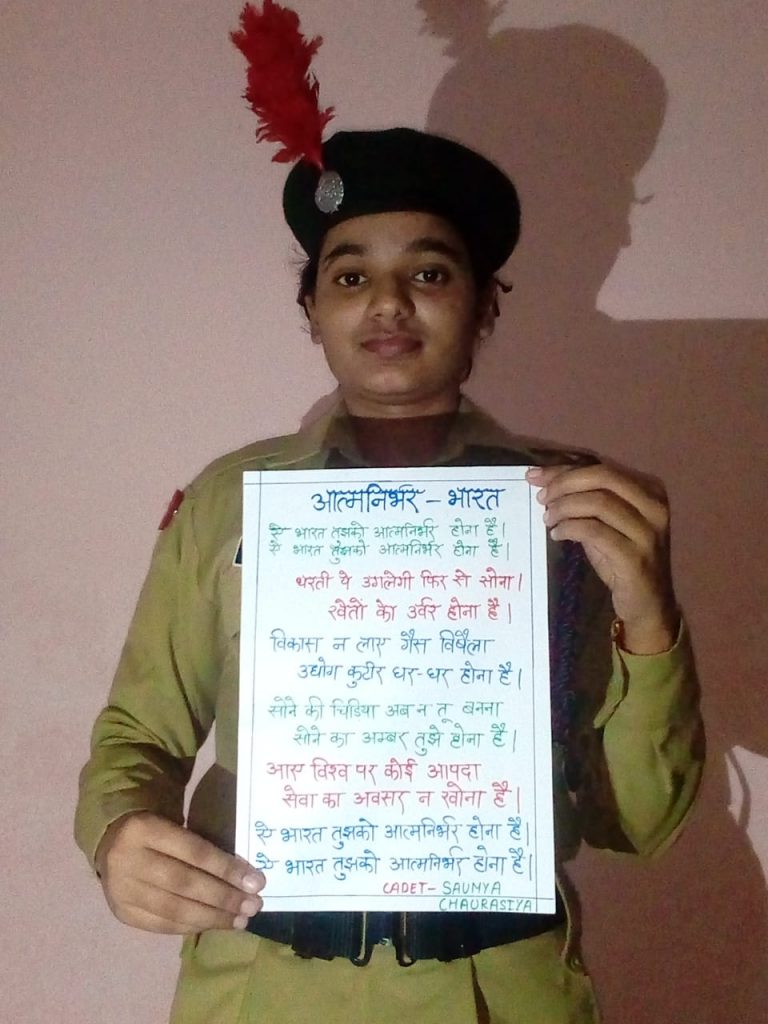 आत्मनिर्भर - भारत
ऐ भारत तुझको आत्मनिर्भर होना है।
ऐ भारत तुझको आत्मनिर्भर होना है।
धरती ये उगलेगी फिर से सोना।
खेतों का उर्वर होना है।
विकास न लाए गैस विषैला
उद्योग कुटीर घर-घर होना है।
सोने की चिडिया अब न तू बनना
सोने का अम्बर तुझे होना है।
आए विश्व पर कोई आपदा
सेवा का अवसर न खोना है।
ऐ भारत तुझको आत्मनिर्भर होना है।
ऐ भारत तुझको आत्मनिर्भर होना है।
CADET- SAUMYA
CHAURASIYA